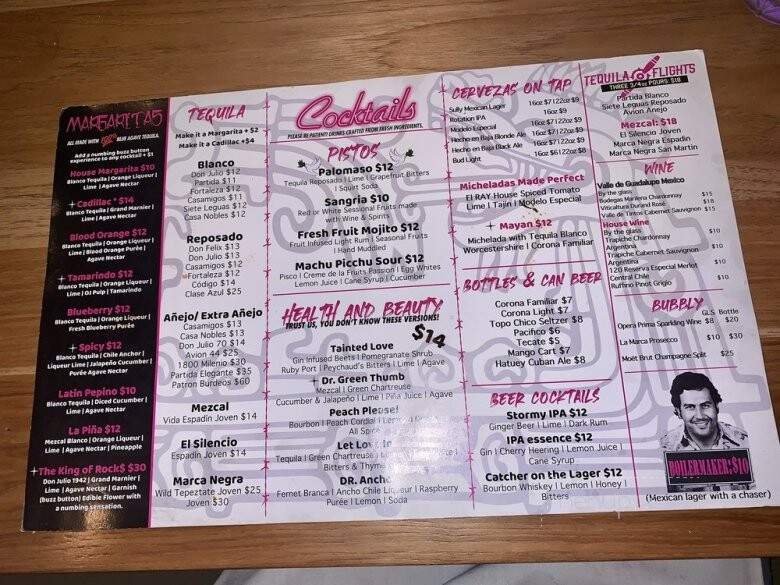 MARGARITAS
ALL MADE WITH 100% BLUE AGAVE TEQUILA.
Add a numbing buzz button
experience to any cocktail + $1
House Margarita $10
Blanco Tequila | Orange Liqueur |
Lime | Agave Nectar
Cadillac * $14
Blanco Tequila | Grand Marnier |
Lime | Agave Nectar
Blood Orange $12
Blanco Tequila | Orange Liqueur |
Lime | Blood Orange Purée |
Agave Nectar
Tamarindo $12
Blanco Tequila | Orange Liqueur |
Lime | OJ Pulp | Tamarindo
Blueberry $12
Blanco Tequila | Orange Liqueur |
Fresh Blueberry Purée
Spicy $12
Blanco Tequila | Chile Anchor |
Liqueur Lime | Jalapeño Cucumber |
Purée Agave Nectar
Latin Pepino $10
Blanco Tequila | Diced Cucumber |
Lime | Agave Nectar
La Piña $12
Mezcal Blanco | Orange Liqueur |
Lime | Agave Nectar | Pineapple
The King of Rock$ $30
Don Julio 1942 | Grand Marnier |
Lime | Agave Nectar | Garnish
(buzz button) Edible Flower with
a numbing sensation.
TEQUILA
Make it a Margarita + $2
Make it a Cadillac +$4
Blanco
Don Julio $12
Partida $11
Fortaleza $12
Casamigos $11
Siete Leguas $12
Casa Nobles $12
Reposado
Don Felix $13
Don Julio $13
Casamigos $12
Fortaleza $12
Código $14
Clase Azul $25
Añejo/ Extra Añejo
Casamigos $13
Casa Nobles $13
Don Julio 70 $14
Avion 44 $25
1800 Milenio $30
Partida Elegante $35
Patron Burdeos $60
Mezcal
Vida Espadín Joven $14
El Silencio
Espadín Joven $14
Marca Negra
Wild Tepeztate Joven $25
Joven $30
Cocktails
PLEASE BE PATIENT! DRINKS CRAFTED FROM FRESH INGREDIENTS.
PISTOS
Palomaso $12
Tequila Reposado | Lime | Grapefruit Bitters
| Squirt Soda
Sangria $10
Red or White Sessional Fruits made
with Wine & Spirits
Fresh Fruit Mojito $12
Fruit Infused Light Rum | Seasonal Fruits
| Hand Muddled
Machu Picchu Sour $12
Pisco | Creme de la Fruits Passion | Egg Whites
Lemon Juice | Cane Syrup | Cucumber
HEALTH AND BEAUTY
TRUST US, YOU DON'T KNOW THESE VERSIONS!
$14
Tainted Love
Gin Infused Beets | Pomegranate Shrub
Ruby Port | Peychaud's Bitters | Lime | Agave
Dr. Green Thumb
Mezcal | Green Chartreuse
Cucumber & Jalapeño | Lime | Piña Juice | Agave
Peach Please!
Bourbon | Peach Cordial |
All Spice
Let Lo
Tequila | Green Chartreuse |
Bitters & Thyme
DR. Ancho
Fernet Branca | Ancho Chile Liqueur | Raspberry
Purée | Lemon | Soda
CERVEZAS ON TAP
Sully Mexican Lager 16oz $7|22oz $9
Robition IPA 16oz $9
Modelo Especial 16oz $7|22oz $9
Hecho en Baja Blonde Ale 16oz $7|22oz $9
Hecho en Baja Black Ale 16oz $7|22oz $9
Bud Light 16oz $6|22oz $8
Micheladas Made Perfect
El RAY House Spiced Tomato
Lime | Tajin | Modelo Especial
Mayan $12
Michelada with Tequila Blanco
Worcestershire | Corona Familiar
BOTTLES & CAN BEER
Corona Familiar $7
Corona Light $7
Topo Chico Seltzer $8
Pacifico $6
Tecate $5
Mango Cart $7
Hatuey Cuban Ale $8
BEER COCKTAILS
Stormy IPA $12
Ginger Beer | Lime | Dark Rum
IPA essence $12
Gin | Cherry Heering | Lemon Juice
Cane Syrup
Catcher on the Lager $12
Bourbon Whiskey | Lemon | Honey |
Bitters
TEQUILA FLIGHTS
THREE 3/4oz POURS: $18
Partida Blanco
Siete Leguas Reposado
Avion Anejo
Mezcal: $18
El Silencio Joven
Marca Negra Espadin
Marca Negra San Martin
WINE
Valle de Guadalupe Mexico
By the glass
Bodegas Marilena Chardonnay $15
Viticaltura Durand Rosé $18
Valle de Tintos Cabernet Sauvignon $15
House Wine
By the glass
Trapiche Chardonnay $10
Argentina
Trapiche Cabernet Sauvignon $10
Argentina
120 Reserva Especial Merlot $10
Central Chile
Ruffino Pinot Grigio $10
BUBBLY
GLS Bottle
Opera Prima Sparkling Wine $8 $20
La Marca Prosecco $10 $30
Moët Brut Champagne Split $25
BOILERMAKER:$10
(Mexican lager with a chaser)